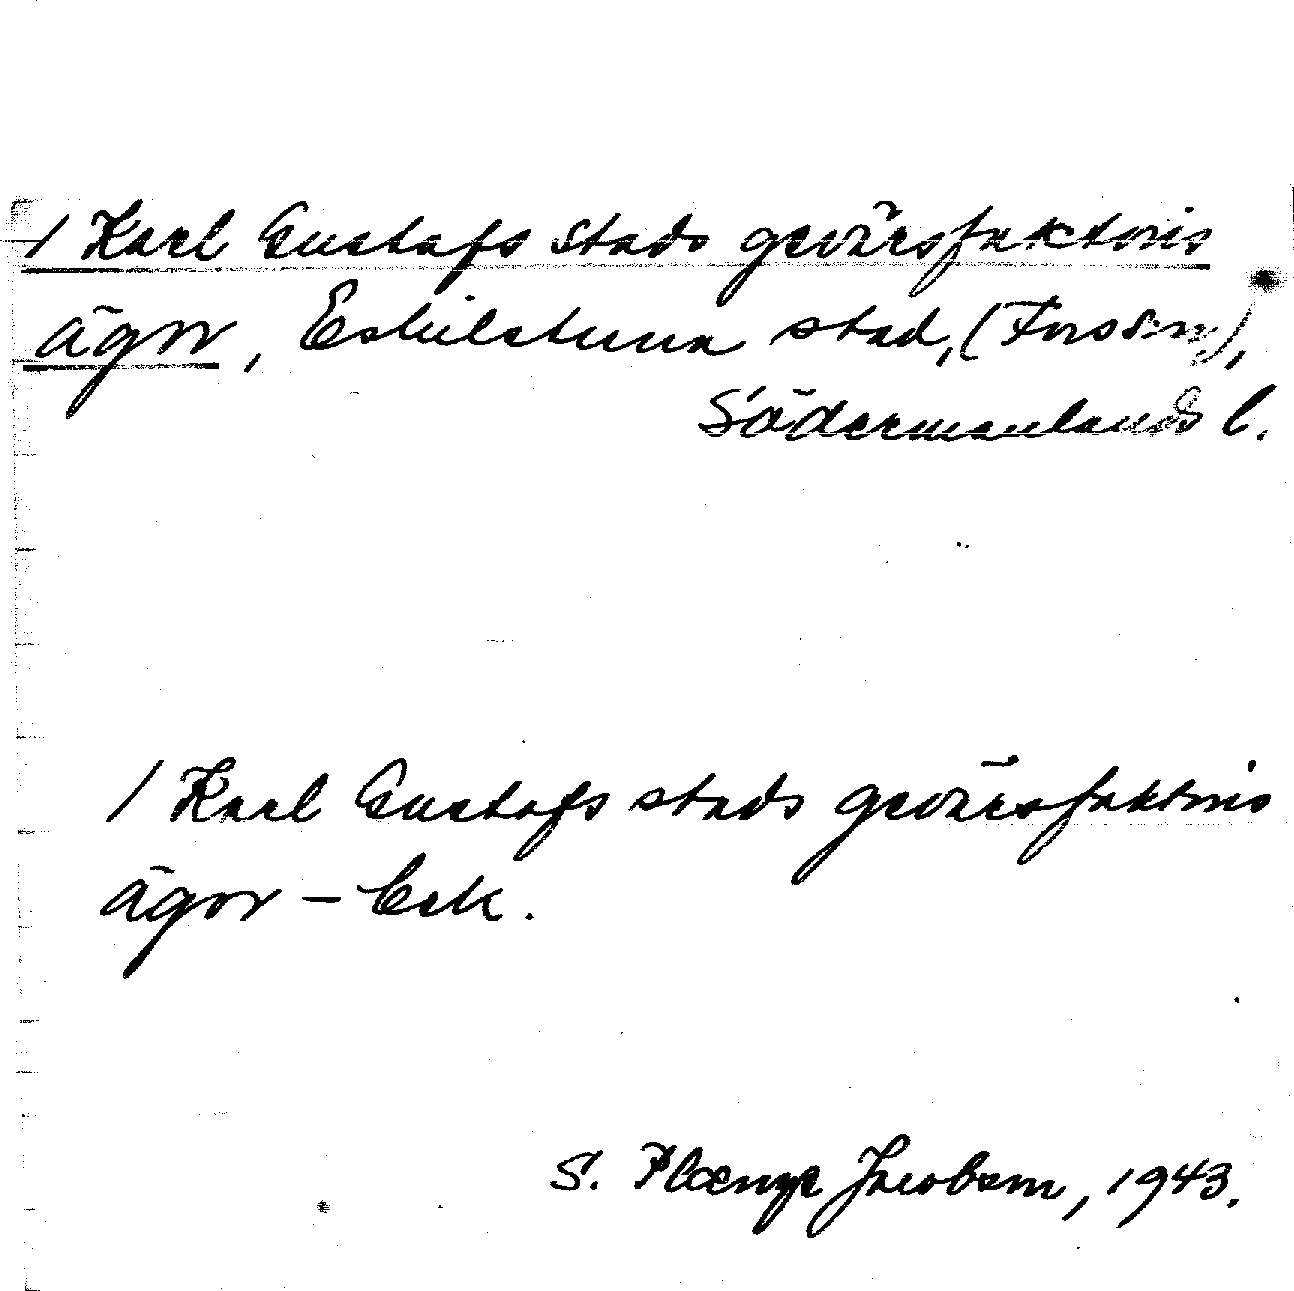 1 Karl Gustafs stads gevärsfaktoris
ägor, Eskilstuna stad, (Forssen),
Södermanlands l.
1 Karl Gustafs stads gevärsfaktoris
ägor – Eek.
S. Plœnge Jacobsen, 1943.